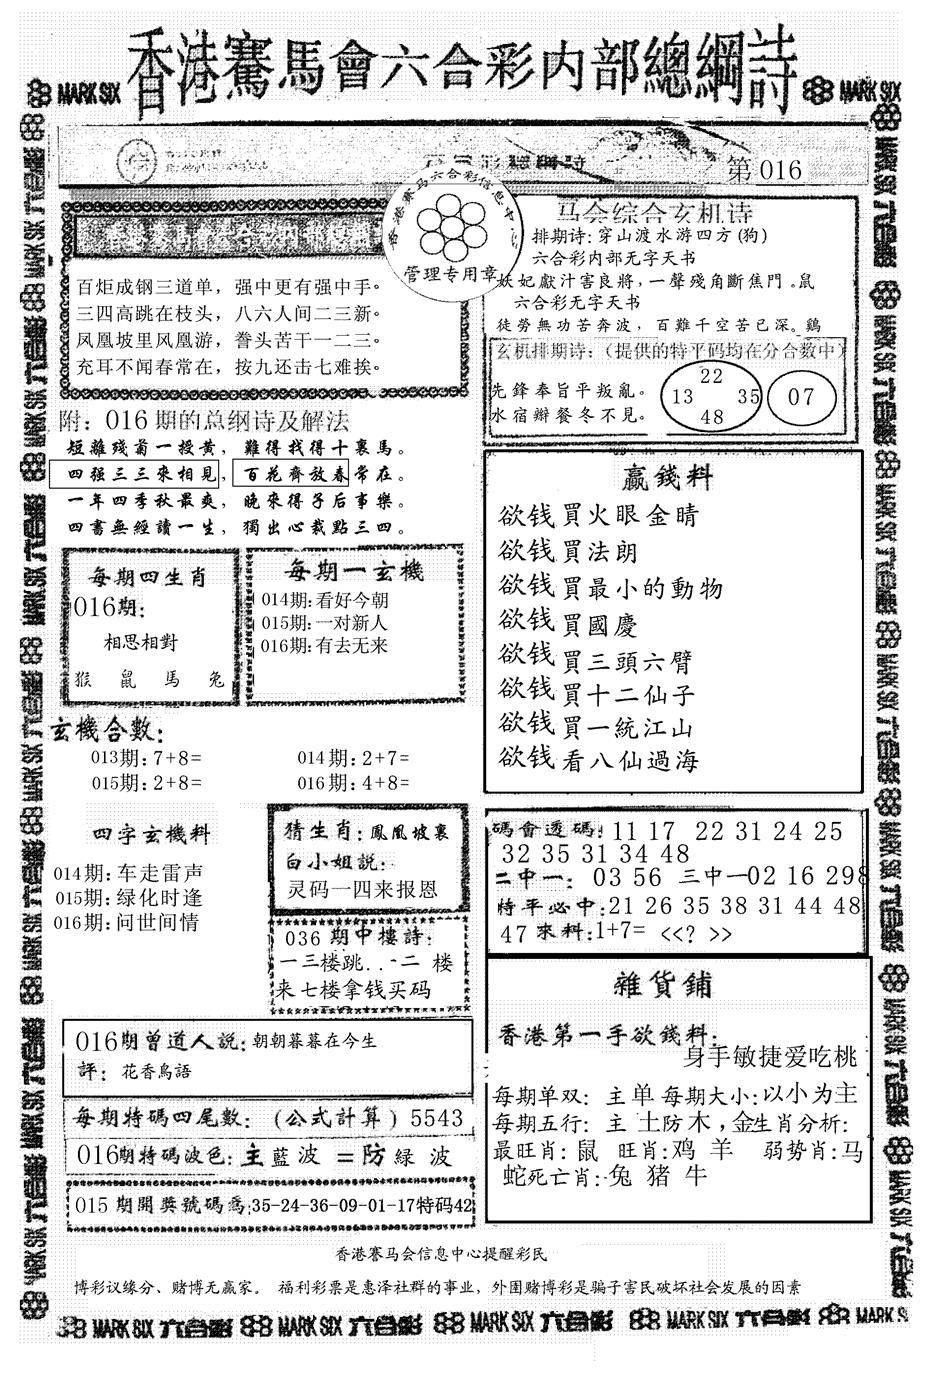 香港賽馬會六合彩内部總綱詩
MARK SIX
MARK SIX
第 016
香港赛马六合彩信息中
管理专用章
百炬成钢三道单，强中更有强中手。
三四高跳在枝头，八六人间二三新。
凤凰坡里凤凰游，誊头苦干一二三。
充耳不闻春常在，按九还击七难挨。
附：016期的总纲诗及解法
短離殘菊一授黄，難得找得十裏馬。
四强三三來相見，百花齊放春常在。
一年四季秋最爽，晚來得子后事樂。
四書無經讀一生，獨出心裁點三四。
马会综合玄机诗
排期诗：穿山渡水游四方(狗)
六合彩内部无字天书
妖妃獻汁害良將，一聲殘角斷焦門。鼠
六合彩无字天书
徒勞無功苦奔波，百難千空苦已深。鷄
玄机排期诗：（提供的特平码均在分合数中）
先鋒奉旨平叛亂。
水宿辦餐冬不見。
22
13 35
48
07
每期四生肖
016期：
相思相對
猴 鼠 馬 兔
每期一玄機
014期：看好今朝
015期：一对新人
016期：有去无来
玄機合數：
013期：7+8=
014期：2+7=
015期：2+8=
016期：4+8=
四字玄機料
014期：车走雷声
015期：绿化时逢
016期：问世间情
猜生肖：鳳凰坡裏
白小姐説：
灵码一四来报恩
036期中樓詩：
一三楼跳..一二 楼
来七楼拿钱买码
016期曾道人説：朝朝暮暮在今生
評：花香鳥語
每期特碼四尾數：（公式計算）5543
016期特碼波色：主藍波=防緑波
015期開獎號碼爲:35-24-36-09-01-17特码42
赢錢料
欲钱買火眼金睛
欲钱買法朗
欲钱買最小的動物
欲钱買國慶
欲钱買三頭六臂
欲钱買十二仙子
欲钱買一統江山
欲钱看八仙過海
碼會透碼：11 17 22 31 24 25
32 35 31 34 48
二中一：03 56 三中一02 16 298
特平必中：21 26 35 38 31 44 48
47 來料：1+7= <<? >>
雜貨鋪
香港第一手欲錢料：
身手敏捷爱吃桃
每期单双：主单 每期大小：以小为主
每期五行：主 土防木，金生肖分析：
最旺肖：鼠 旺肖：鸡 羊 弱势肖：马
蛇死亡肖：兔 猪 牛
香港赛马会信息中心提醒彩民
博彩议缘分、赌博无赢家。 福利彩票是惠泽社群的事业，外围赌博彩是骗子害民破坏社会发展的因素
MARK SIX 六合彩 MARK SIX 六合彩 MARK SIX 六合彩 MARK SIX 六合彩 MARK SIX